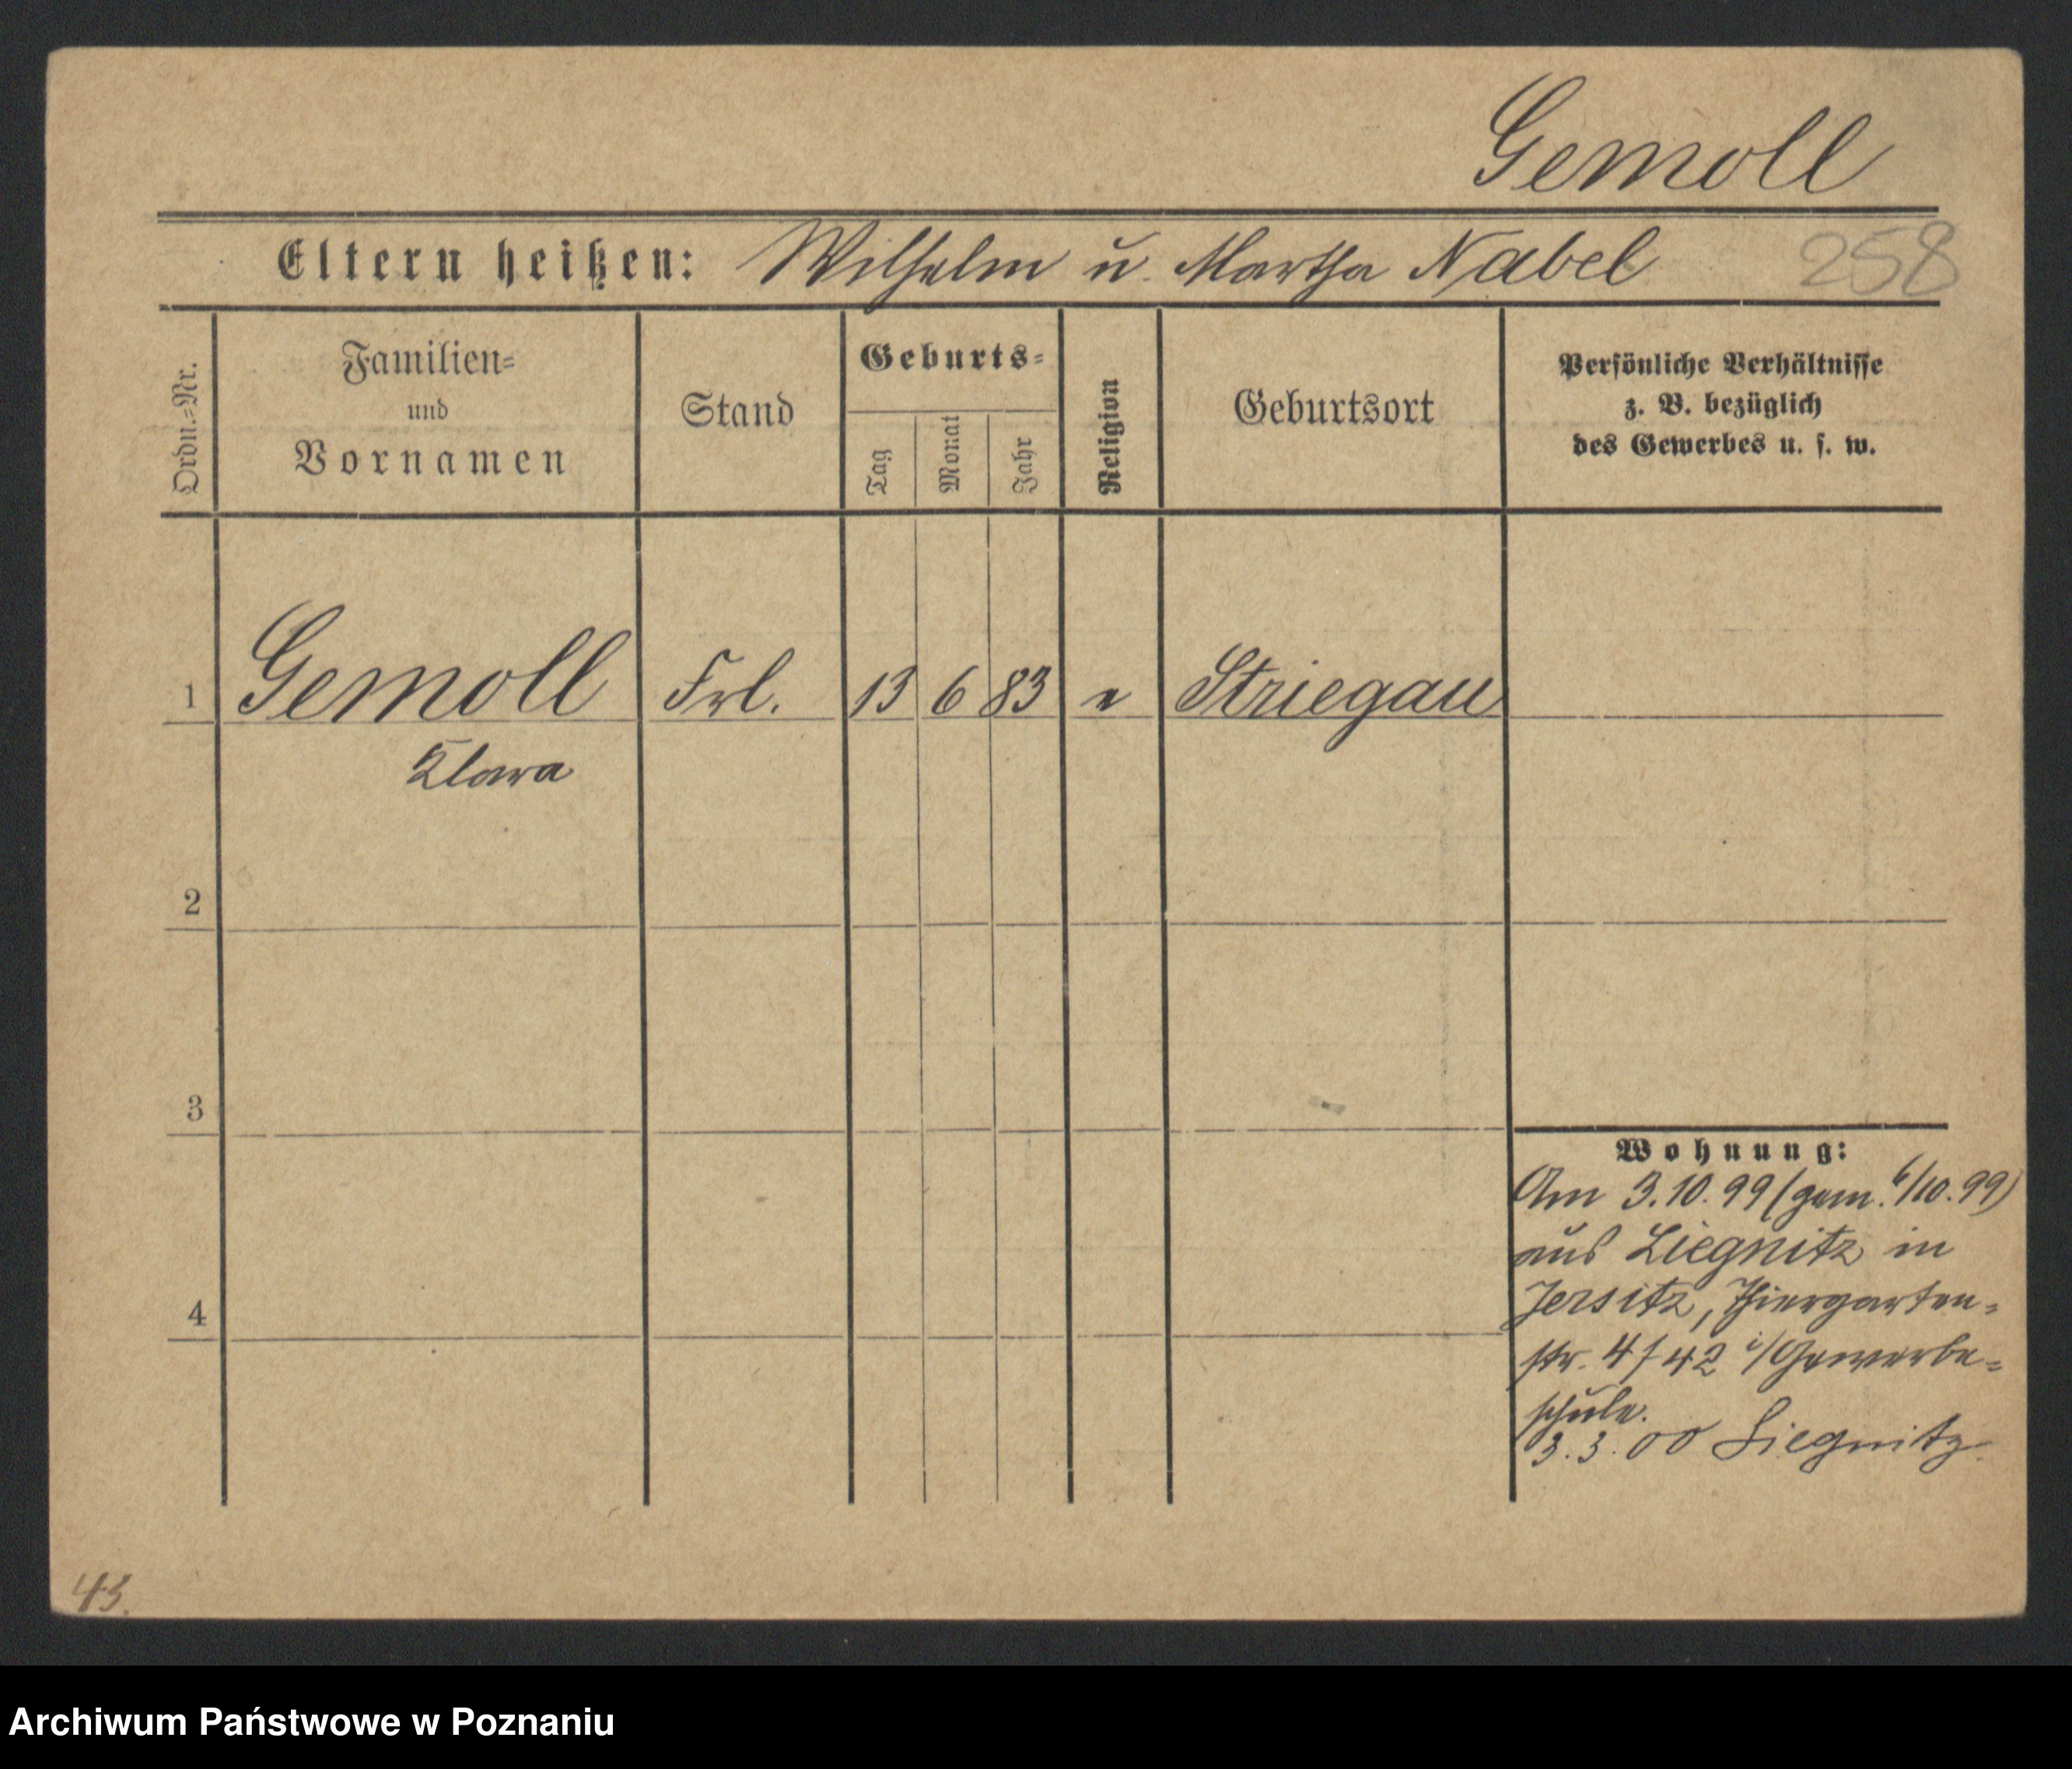 Gemoll
Eltern heißen: Wilhelm u. Martha Nabel 258
Ordn.=Nr.
Familien=
und
Vornamen
Stand
Geburts=
Tag
Monat
Jahr
Religion
Geburtsort
Persönliche Verhältnisse
z. B. bezüglich
des Gewerbes u. s. w.
1 Gemoll Frl. 13 6 83 e Striegau
Klara
2
3
4
Wohnung:
Am 3.10.99 (gem. 6/10.99)
aus Liegnitz in
Jersitz, Thiergarten=
str. 4/42 i/Gewerbe=
schule.
3.3.00 Liegnitz.
43.
Archiwum Państwowe w Poznaniu